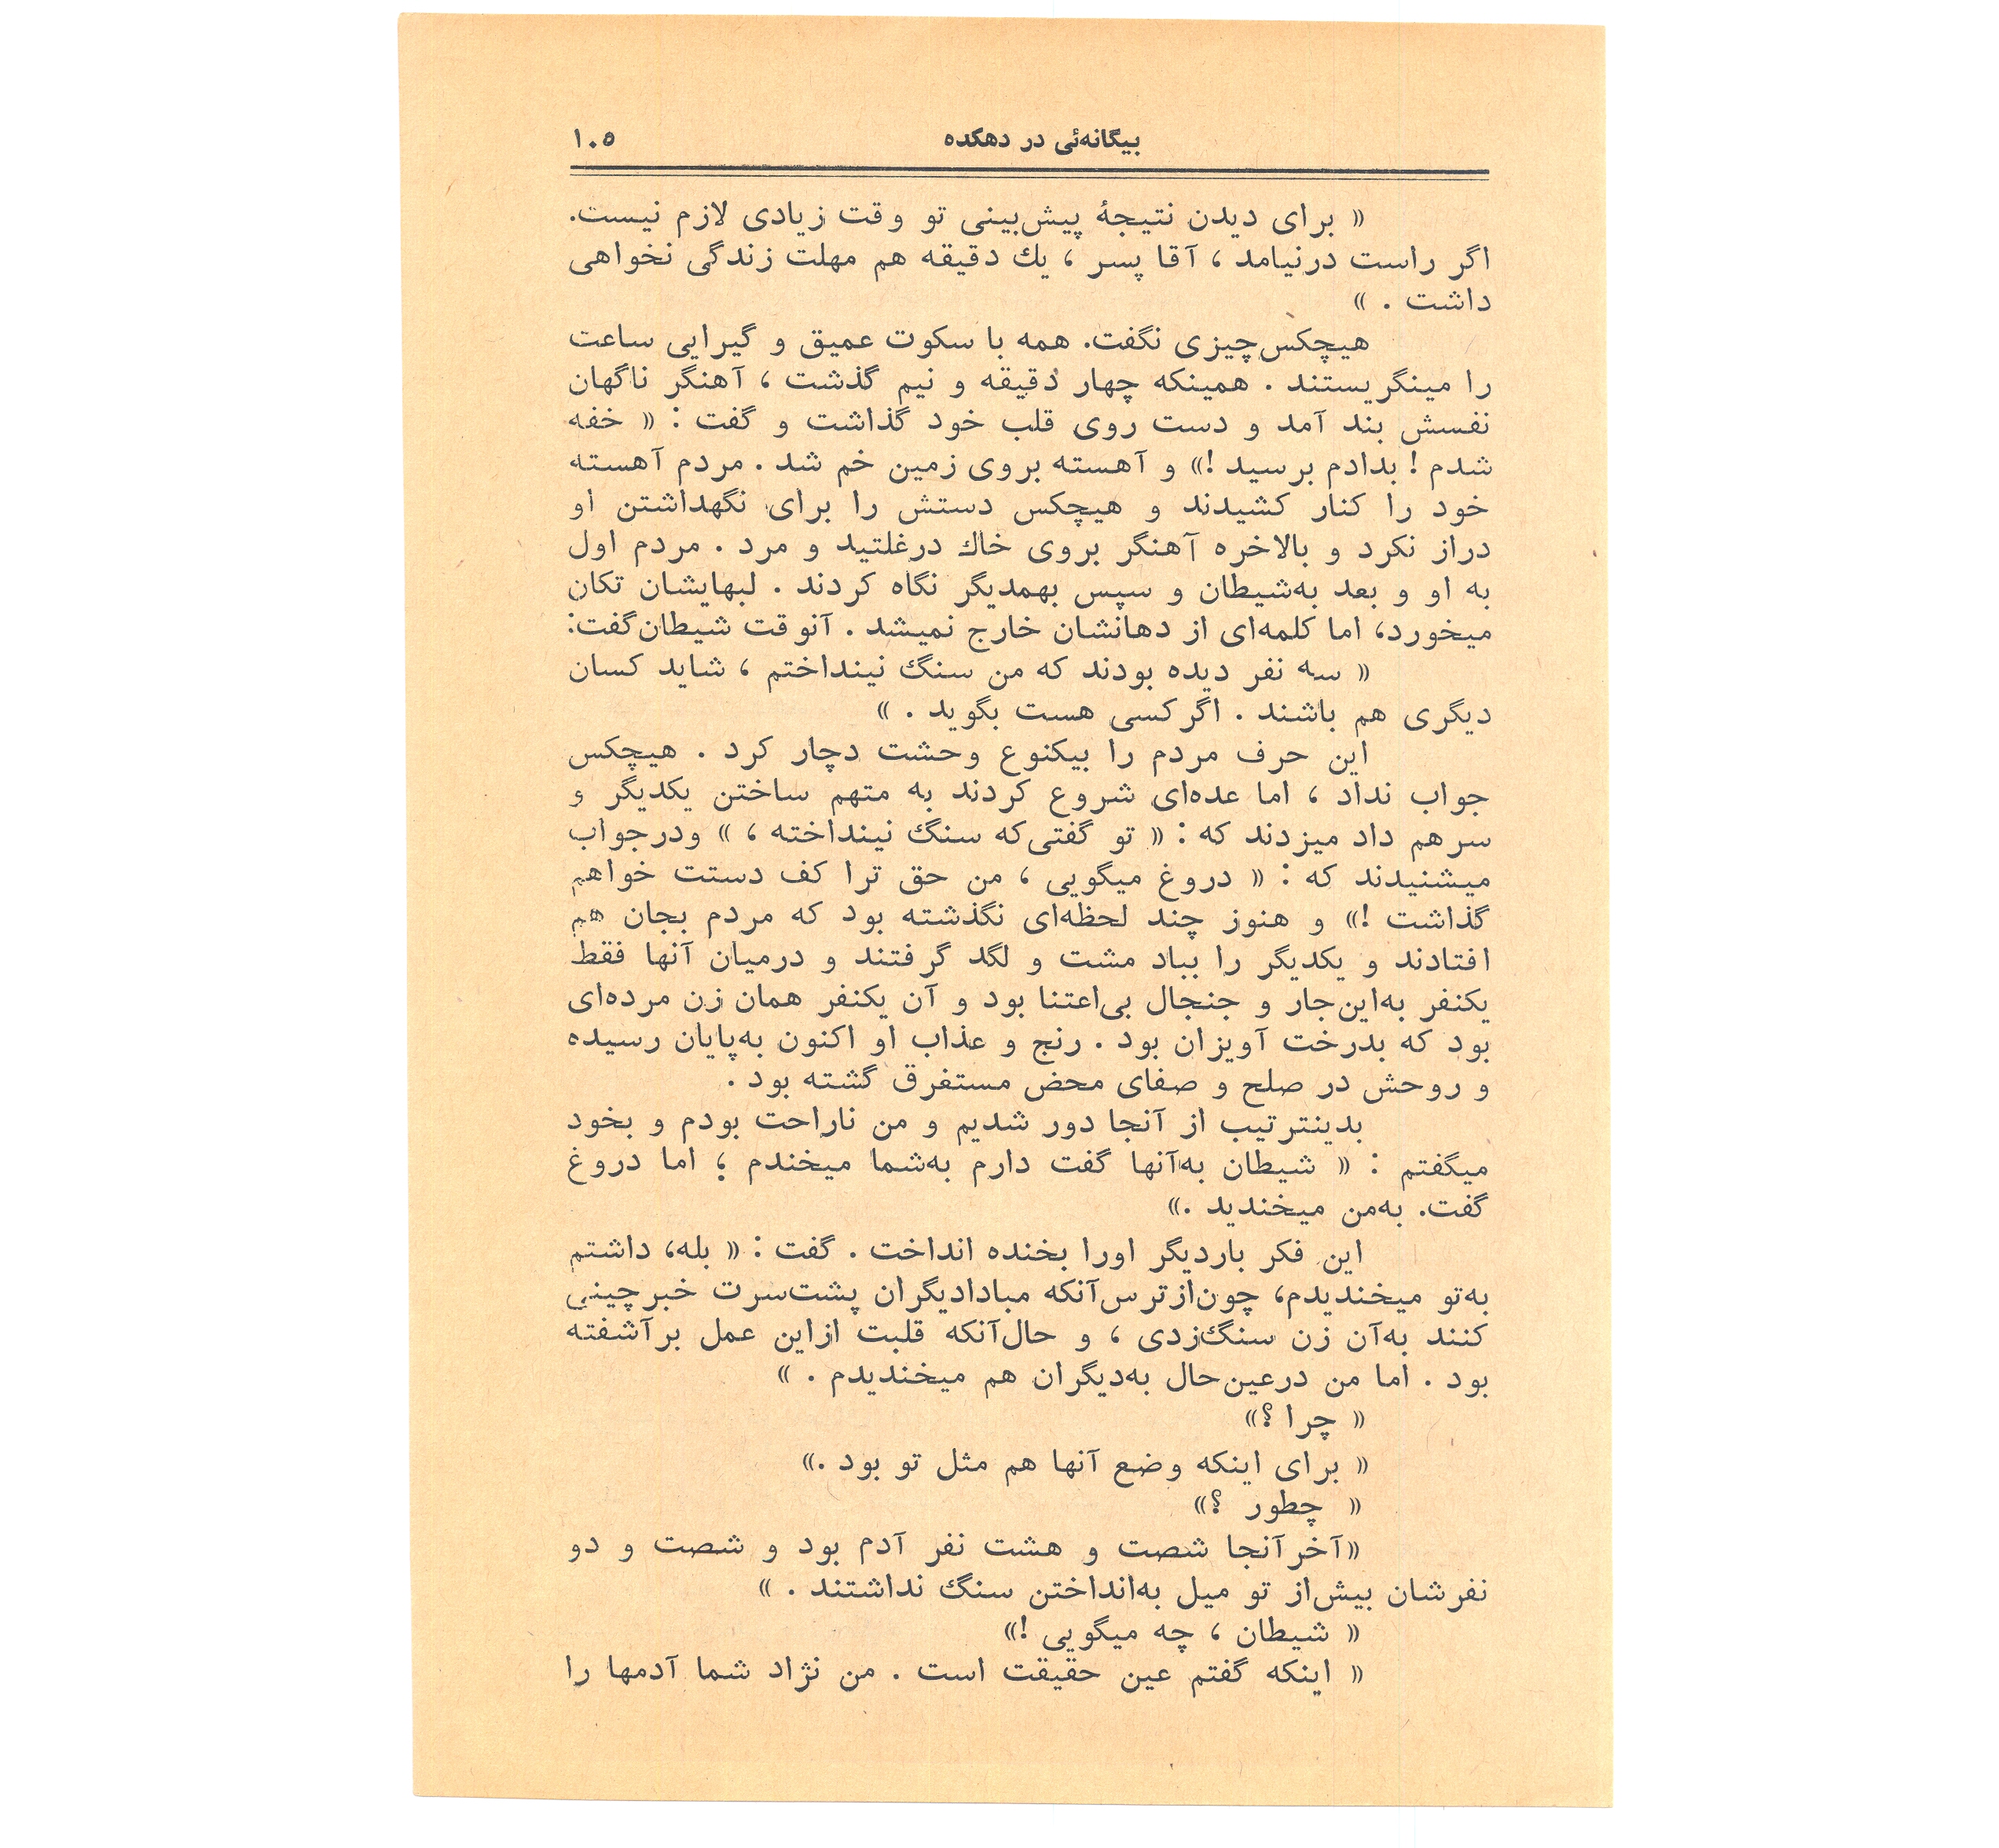 بیگانه‌ئی در دهکده ۱۰۵
« برای دیدن نتیجهٔ پیش‌بینی تو وقت زیادی لازم نیست.
اگر راست درنیامد ، آقا پسر ، یك دقیقه هم مهلت زندگی نخواهی
داشت . »
هیچکس‌چیزی نگفت. همه با سکوت عمیق و گیرایی ساعت
را مینگریستند . همینکه چهار دقیقه و نیم گذشت ، آهنگر ناگهان
نفسش بند آمد و دست روی قلب خود گذاشت و گفت : « خفه
شدم ! بدادم برسید !» و آهسته بروی زمین خم شد . مردم آهسته
خود را کنار کشیدند و هیچکس دستش را برای نگهداشتن او
دراز نکرد و بالاخره آهنگر بروی خاك درغلتید و مرد . مردم اول
به او و بعد به‌شیطان و سپس بهمدیگر نگاه کردند . لبهایشان تکان
میخورد، اما کلمه‌ای از دهانشان خارج نمیشد . آنوقت شیطان‌گفت:
« سه نفر دیده بودند که من سنگ نینداختم ، شاید کسان
دیگری هم باشند . اگرکسی هست بگوید . »
این حرف مردم را بیکنوع وحشت دچار کرد . هیچکس
جواب نداد ، اما عده‌ای شروع کردند به متهم ساختن یکدیگر و
سرهم داد میزدند که : « تو گفتی‌که سنگ نینداخته ، » ودرجواب
میشنیدند که : « دروغ میگویی ، من حق ترا کف دستت خواهم
گذاشت !» و هنوز چند لحظه‌ای نگذشته بود که مردم بجان هم
افتادند و یکدیگر را بباد مشت و لگد گرفتند و درمیان آنها فقط
یکنفر به‌این‌جار و جنجال بی‌اعتنا بود و آن یکنفر همان زن مرده‌ای
بود که بدرخت آویزان بود . رنج و عذاب او اکنون به‌پایان رسیده
و روحش در صلح و صفای محض مستفرق گشته بود .
بدینترتیب از آنجا دور شدیم و من ناراحت بودم و بخود
میگفتم : « شیطان به‌آنها گفت دارم به‌شما میخندم ؛ اما دروغ
گفت. به‌من میخندید .»
این فکر باردیگر اورا بخنده انداخت . گفت : « بله، داشتم
به‌تو میخندیدم، چون‌ازترس‌آنکه مبادادیگران پشت‌سرت خبرچینی
کنند به‌آن زن سنگ‌زدی ، و حال‌آنکه قلبت ازاین عمل برآشفته
بود . اما من درعین‌حال به‌دیگران هم میخندیدم . »
« چرا ؟»
« برای اینکه وضع آنها هم مثل تو بود .»
« چطور ؟»
«آخرآنجا شصت و هشت نفر آدم بود و شصت و دو
نفرشان بیش‌از تو میل به‌انداختن سنگ نداشتند . »
« شیطان ، چه میگویی !»
« اینکه گفتم عین حقیقت است . من نژاد شما آدمها را